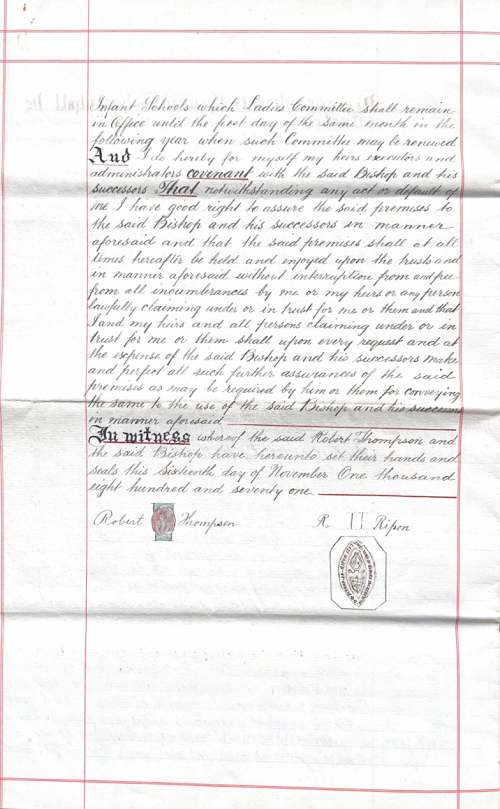 Infant Schools which Ladies Committee shall remain
in Office until the first day of the same month in the
following year when such Committee may be renewed
And I do hereby for myself my heirs executors and
administrators covenant with the said Bishop and his
successors That notwithstanding any act or default of
me I have good right to assure the said premises to
the said Bishop and his successors in manner
aforesaid and that the said premises shall at all
times hereafter be held and enjoyed upon the trusts and
in manner aforesaid without interruption from and free
from all incumbrances by me or my heirs or any person
lawfully claiming under or in trust for me or them and that
I and my heirs and all persons claiming under or in
trust for me or them shall upon every request and at
the expense of the said Bishop and his successors make
and perfect all such further assurances of the said
premises as may be required by him or them for conveying
the same to the use of the said Bishop and his successors
in manner aforesaid
In witness whereof the said Robert Thompson and
the said Bishop have hereunto set their hands and
seals this Sixteenth day of November One thousand
eight hundred and seventy one.
Robert Thompson
R Ripon